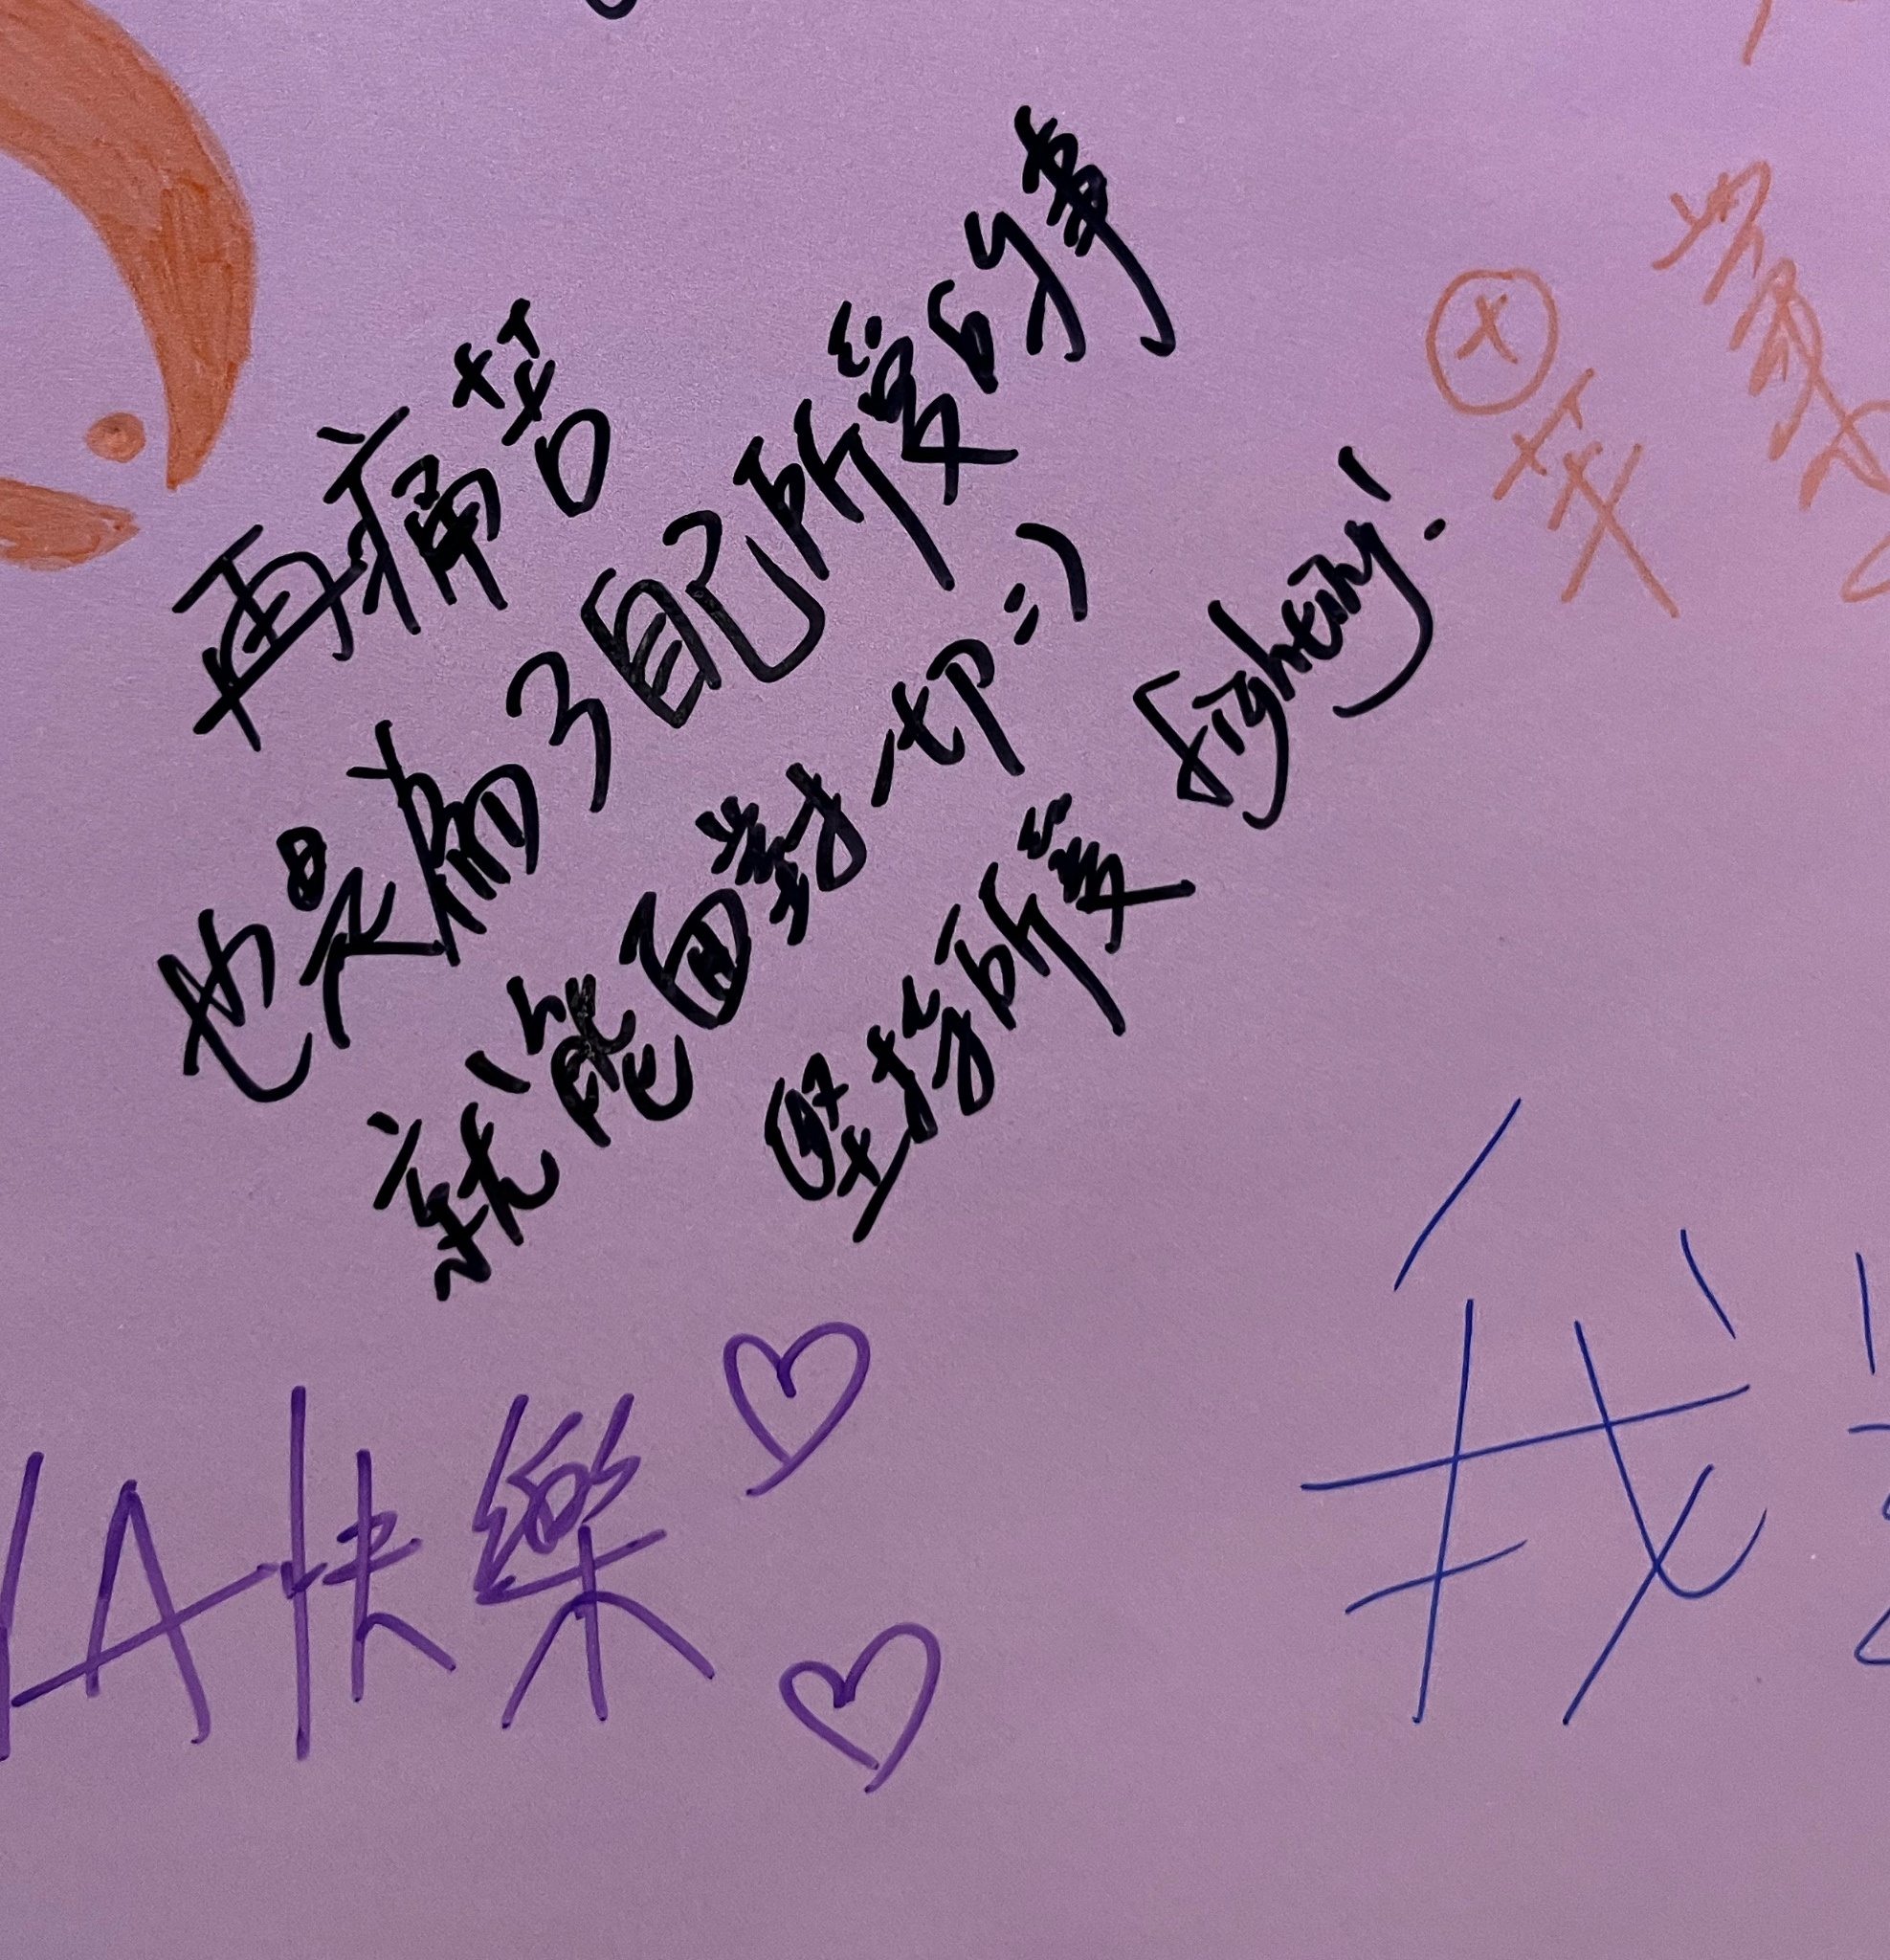 再痛苦
也是為了自己所愛的事
就能面對一切 =)
堅持所愛 fighting!
A快樂♡
♡
我